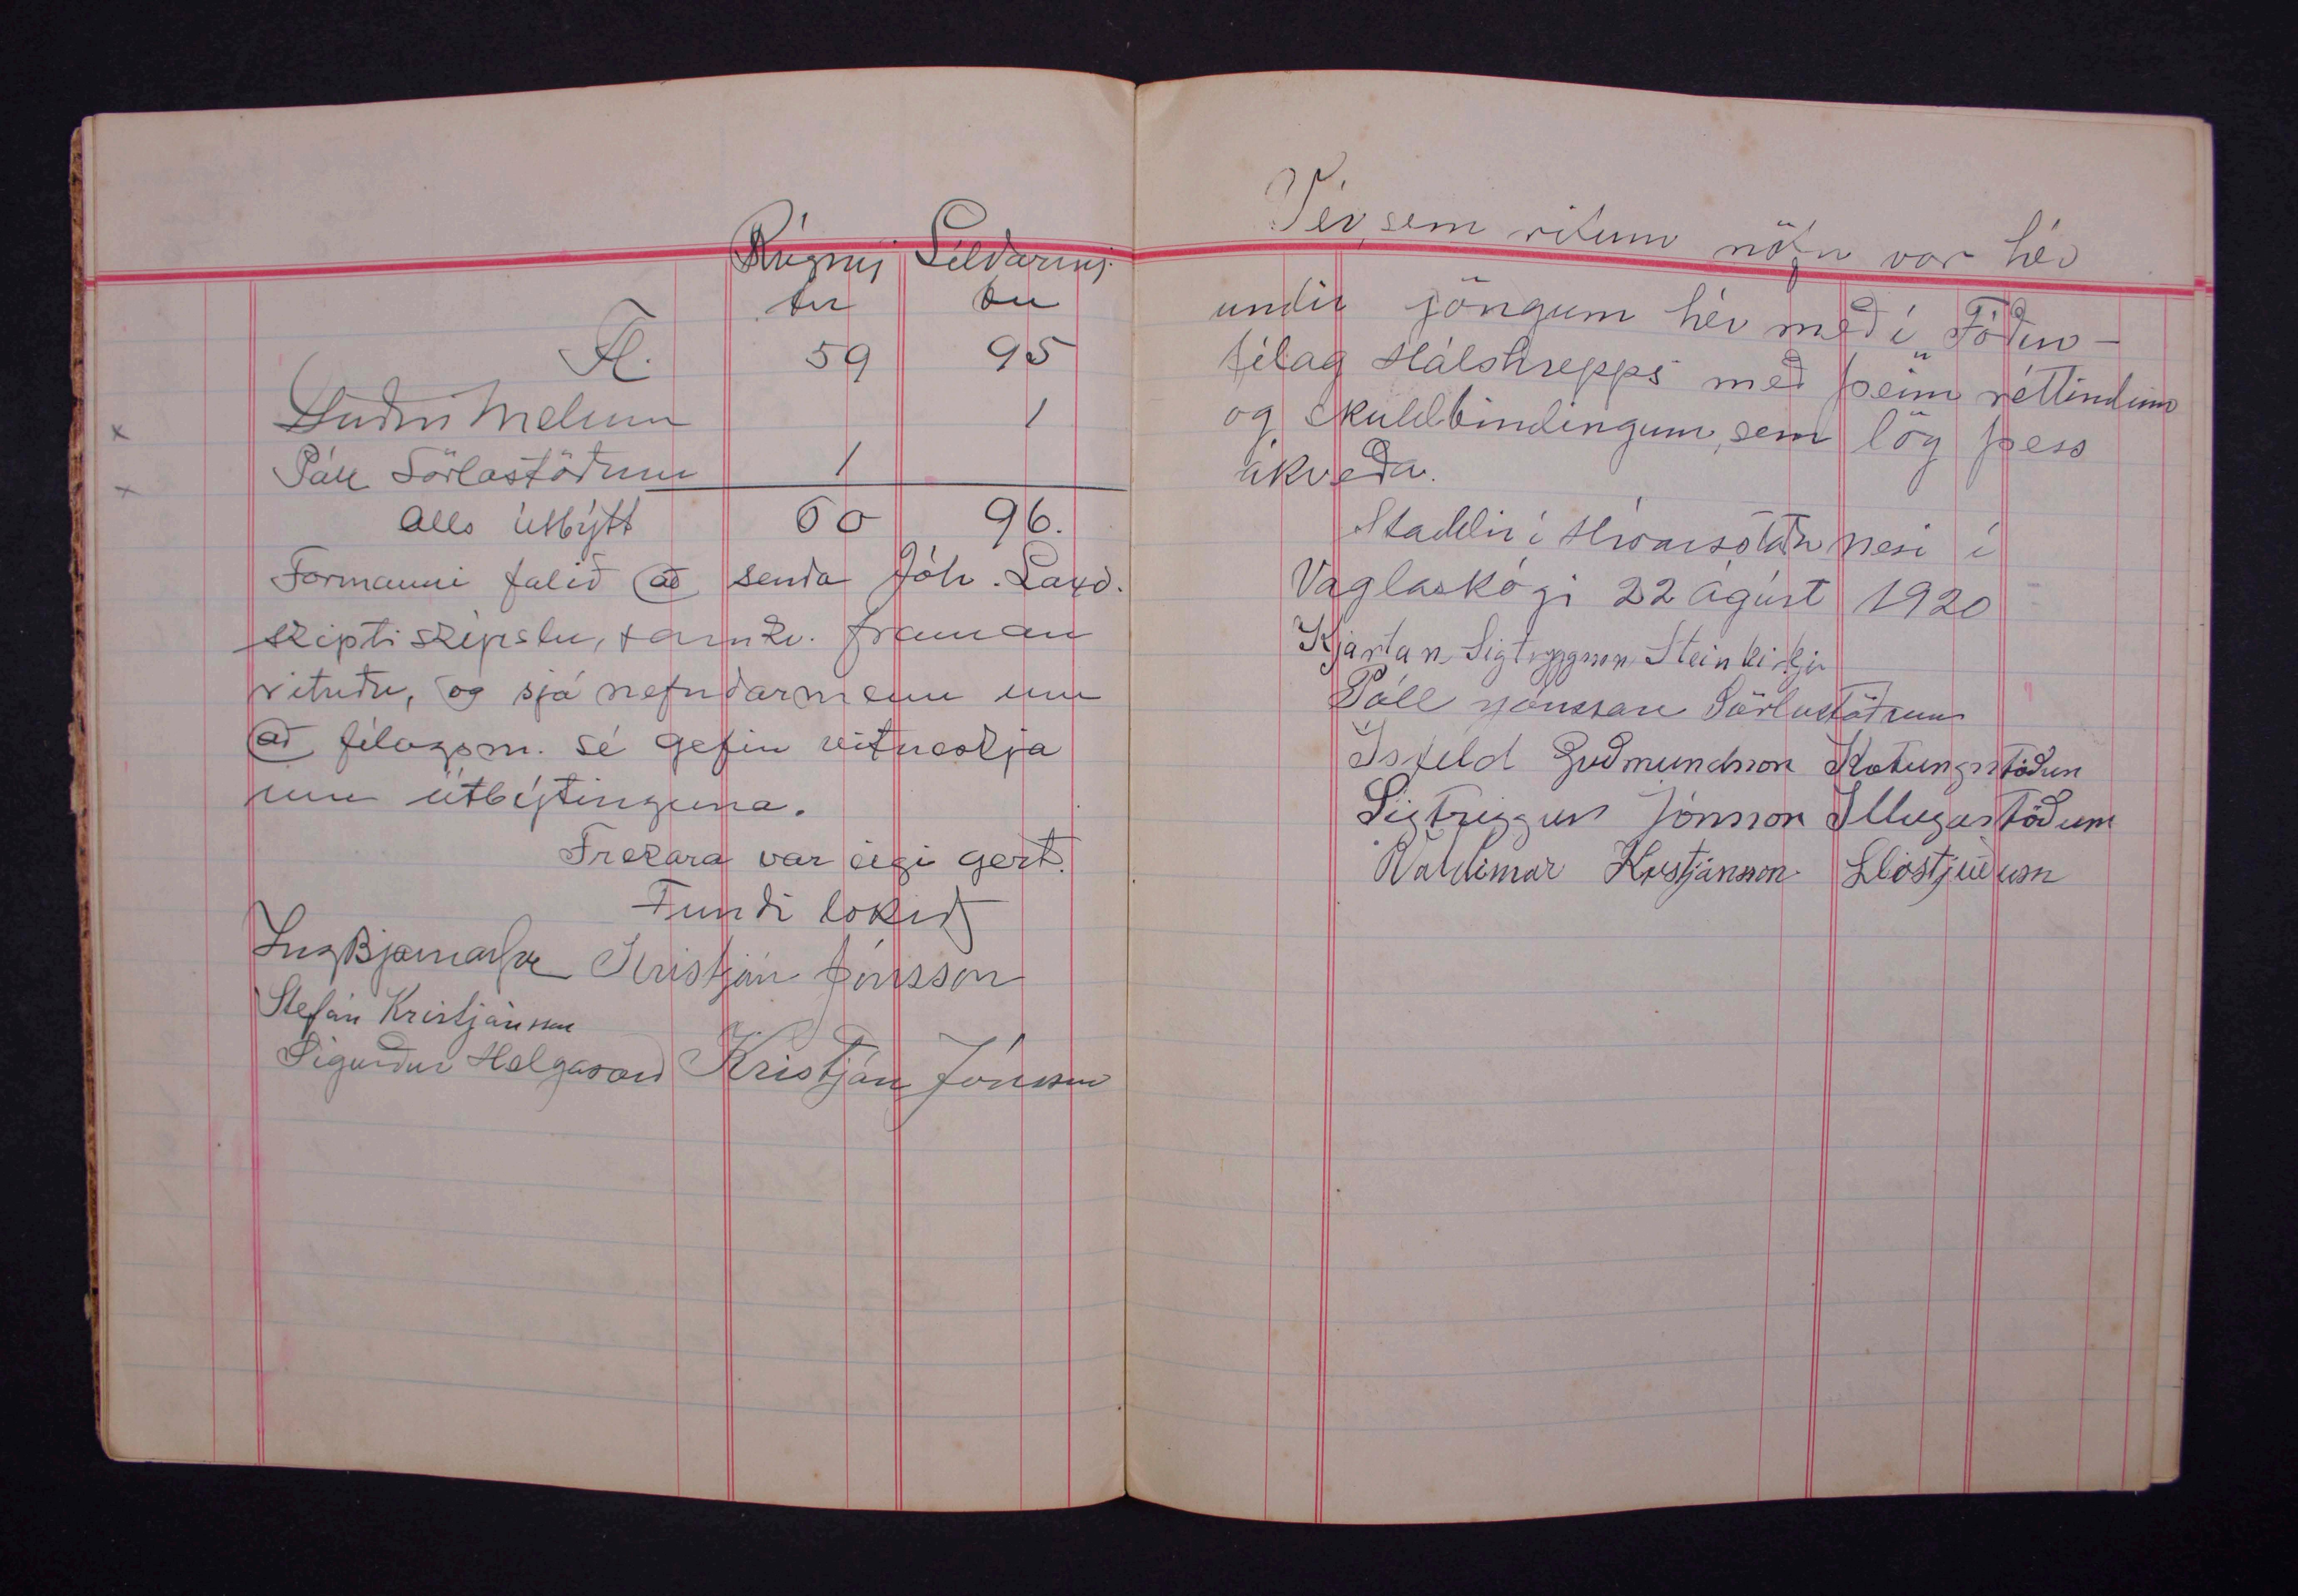 Rúgmj Síldarmj.
tn tn
Fl. 59 95
x Guðni Melum 1
x Páll Sörlastöðum 1
Alls útbýtt 60 96.
Formanni falið að senda Jóh. Laxd.
skiptiskýrslu, samkv. framan
rituðu, og sjá nefndarmenn um
að félagsm. sé gefin vitneskja
um útbýtinguna.
Frekara var eigi gert.
Fundi lokið
IngBjarnarson Kristján Jónsson
Stefán Kristjánsson
Sigurður Helgason Kristján Jónsson
Vér, sem ritum nöfn vor hér
undir göngum hér með í "Fóður-
félag Hálshrepps" með þeim réttindum
og skuldbindingum, sem lög þess
ákveða.
Staddir í nesi í
Vaglaskógi 22 ágúst 1920
Kjartan Sigtryggsson Steinkirkju
Páll Jónsson Sörlastöðum
Ísfeld Guðmundsson Kotungsstöðum
Sigtriggur Jónsson Illugastöðum
Valdimar Kristjánsson